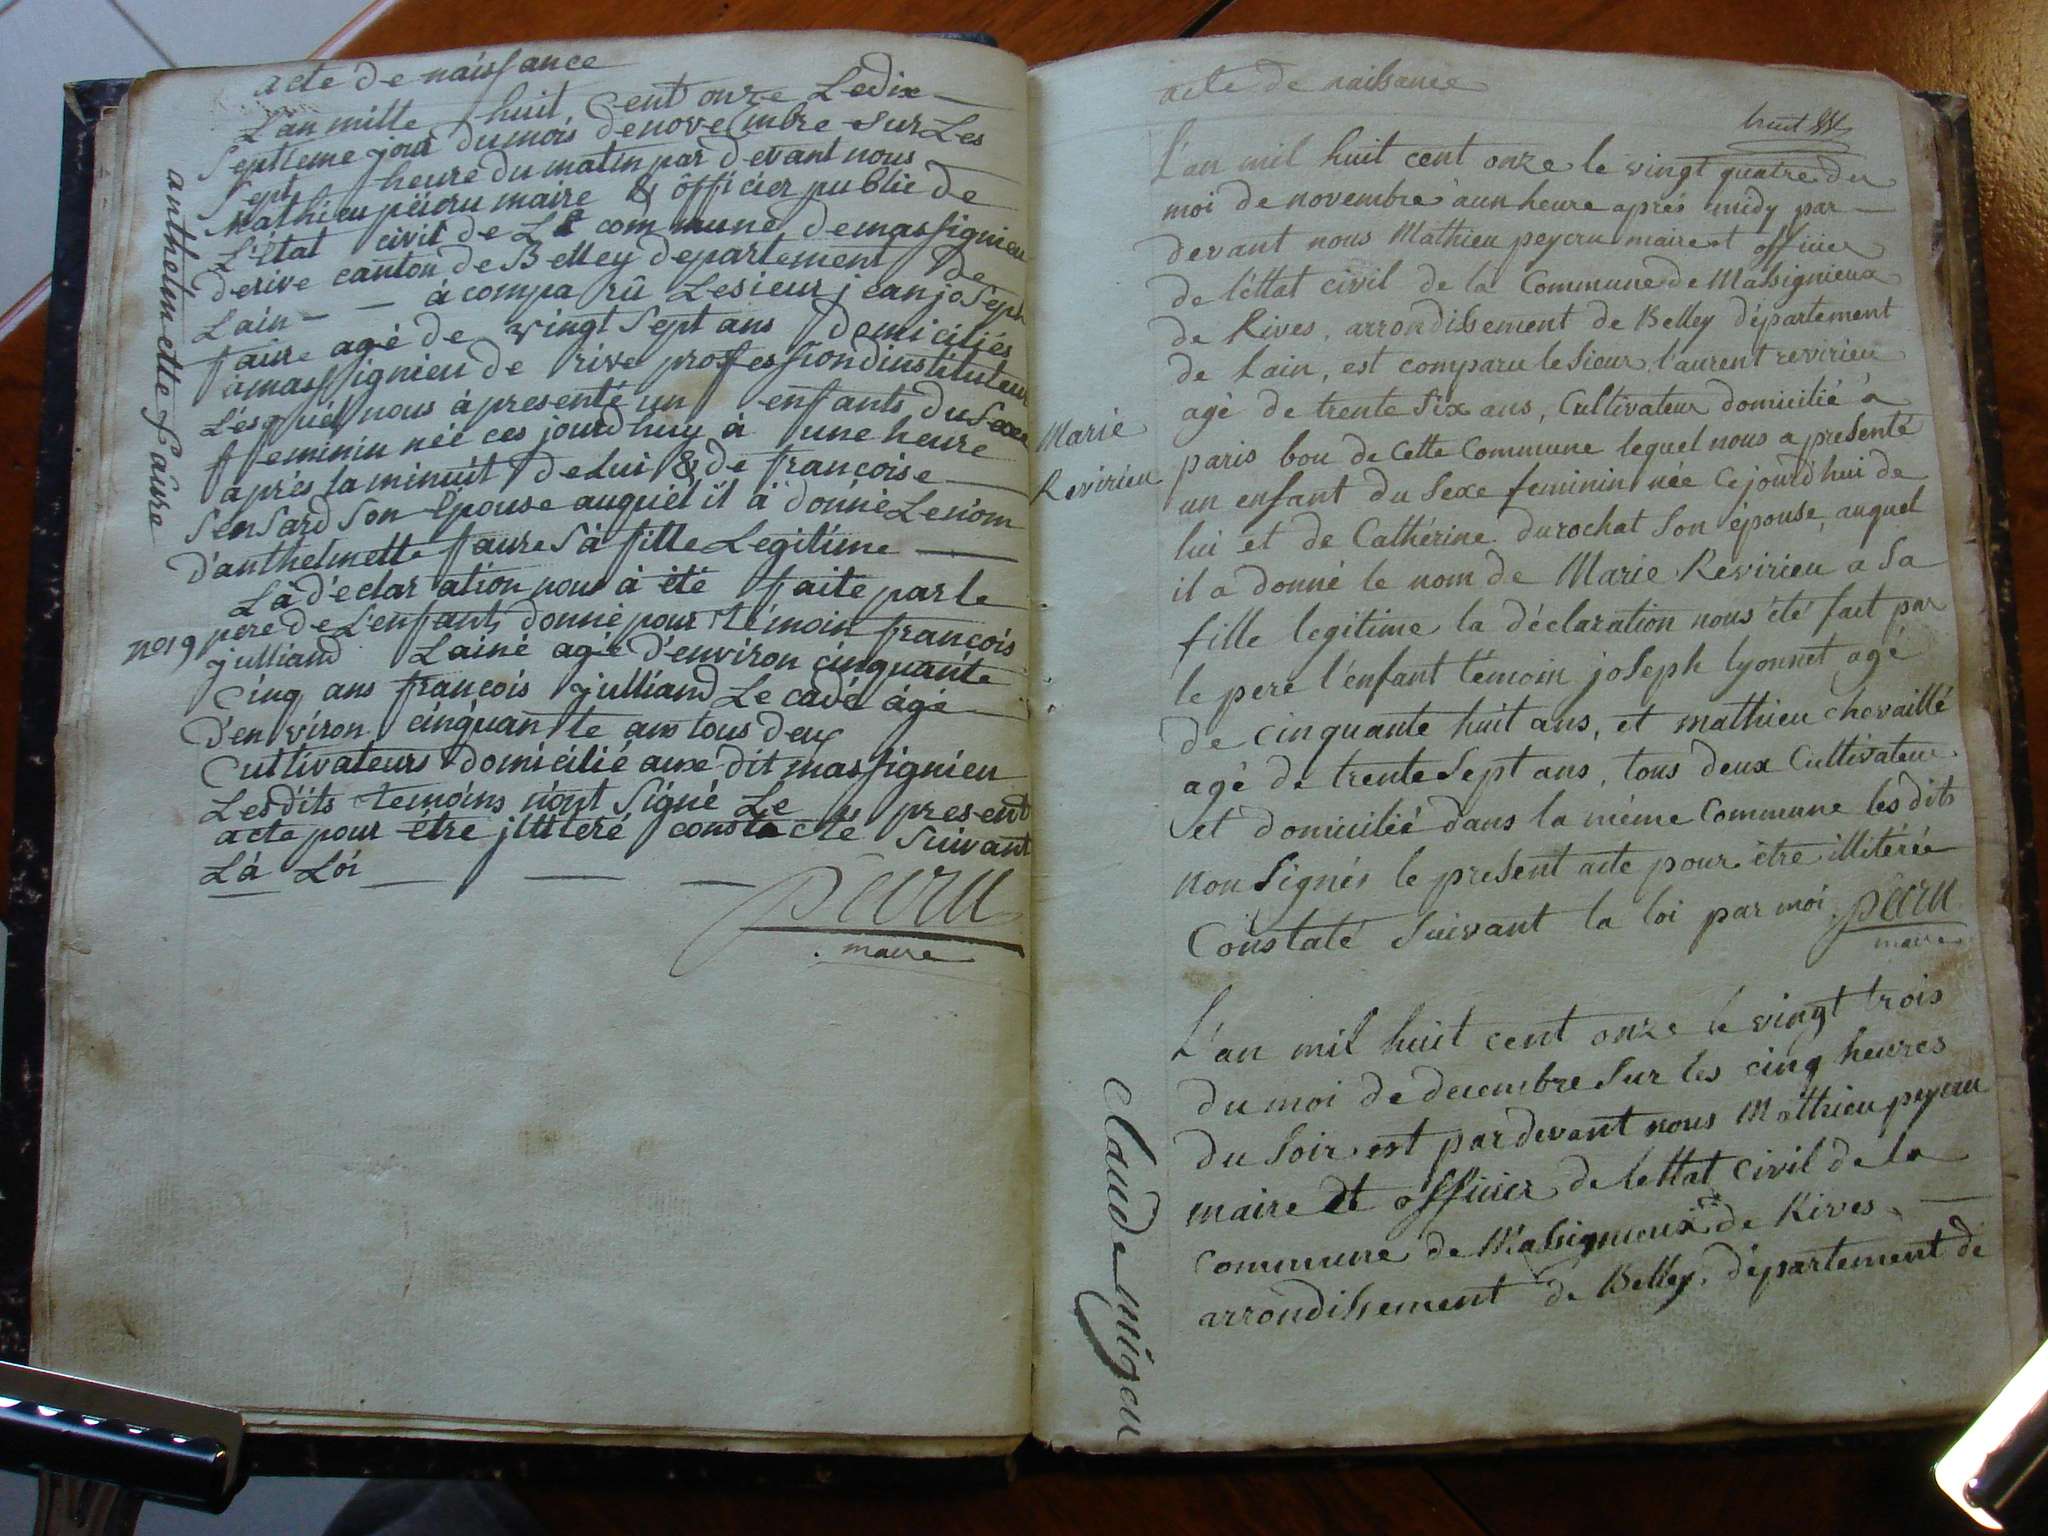 acte de naissance
L'an mille huit Cent onze Ledix
Septieme jour dumois denovembre sur Les
Sept heure du matin par devant nous
Mathieu péicru maire & ôfficier public de
L'état civil de La commune demassignieu
derive canton de Belley departement de
Lain - - à compa rû Lesieur jeanjoseph
faure agé de vingt Sept ans domiciliés
amassignieu de rive professiondinstituteur
Lésquél nous à presenté un enfants du Sexe
ffeminin néé ces jourdhuy à une heure
aprés la minuit de Lui & de francoise
Sensard Son Epouse auquiél il à donné Le nom
d'anthelmette faure sa fille Legitime
La déclaration nous à été faite par le
pere de L'enfant, donné pour témoin françois
julliand Lainé agé d'environ cinquante
Cinq ans françois julliand Le cadé agé
d'environ cinquante ans tous deux
Cultivateurs domicilié aux dit massignieu
Lesdits temoins n'ont Signé Le present
acte pour être jlitteré constaté Suivant
La Loi
peicru
maire
anthelmette faure
no 19
acte de naissance
huit
L'an mil huit cent onze le vingt quatre du
moi de novembre à un heure aprés midy par
devant nous Mathieu peycru maire et officier
de lettat civil de la Commune de Massignieux
de Rives, arrondissement de Belley département
de Lain, est comparu le Sieur laurent revirieu
agé de trente Six ans, Cultivateur domicilié à
paris bou de Cette Commune lequel nous a presenté
un enfant du Sexe feminin née Cejourd'hui de
lui et de Cathérine durochat Son épouse, auquel
il a donné le nom de Marie Revirieu a Sa
fille legitime la déclaration nous été fait par
le pere l'enfant témoin joseph lyonnet agé
de cinquante huit ans, et mathieu chevaillé
agé de trente Sept ans, tous deux Cultivateur
et domicilié dans la même Commune les dits
non Signés le present acte pour être illitérée
Constaté suivant la loi par moi peicru
maire
Marie
Revirieu
L'an mil huit cent onze le vingt trois
du moi de decembre Sur les cinq heures
du Soir est pardevant nous Mathieu peycru
maire et officier de lettat civil de la
Commune de Massignieux de Rives
arrondissement de Belley, département de
Claude migau